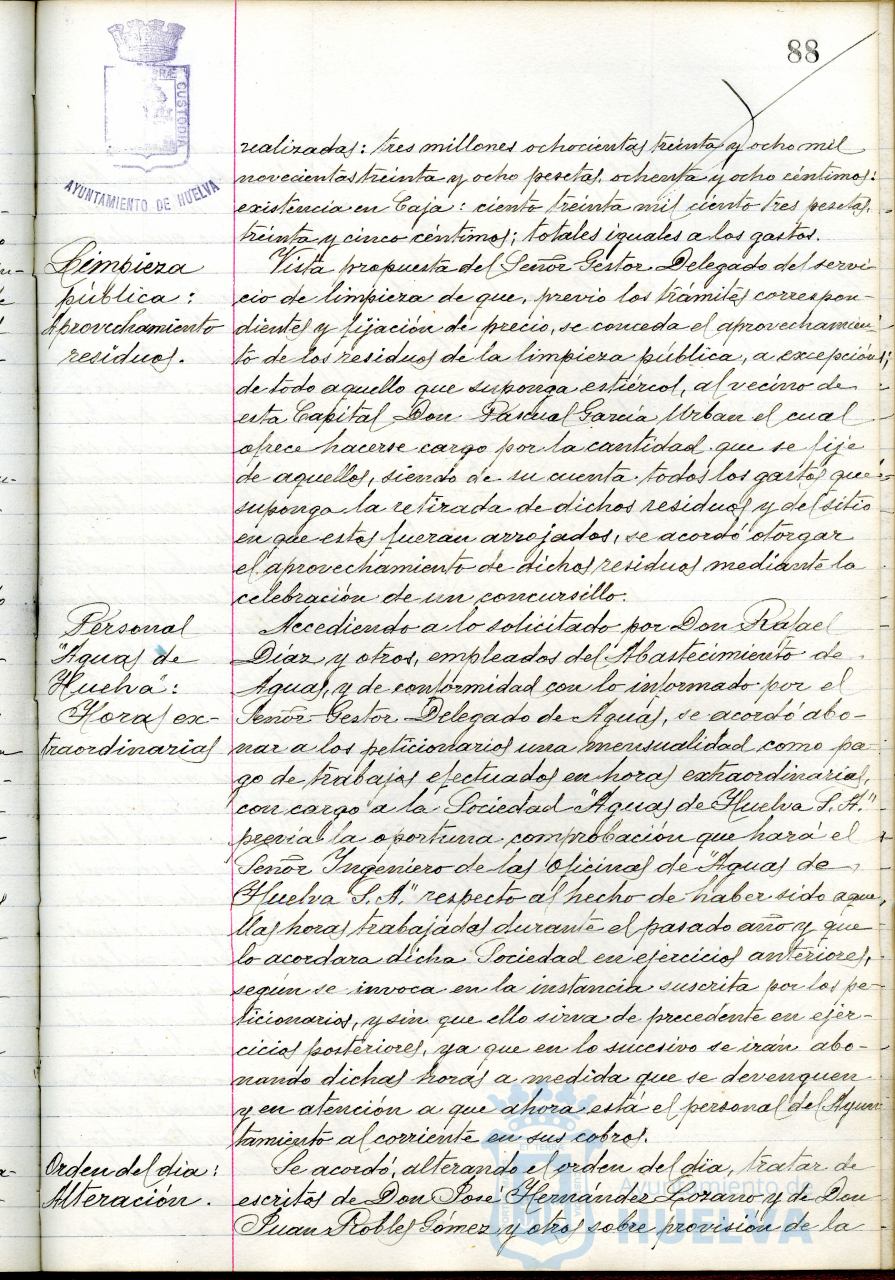 88
CUSTODIA
AYUNTAMIENTO DE HUELVA
realizadas: tres millones ochocientas treinta y ocho mil
novecientas treinta y ocho pesetas, ochenta y ocho céntimos:
existencia en Caja: ciento treinta mil ciento tres pesetas,
treinta y cinco céntimos; totales iguales a los gastos.
Limpieza
pública:
Aprovechamiento
residuos.
Vista propuesta del Señor Gestor Delegado del servi-
cio de limpieza de que, previo los trámites correspon-
dientes y fijación de precio, se conceda el aprovechamien-
to de los residuos de la limpieza pública, a excepción
de todo aquello que suponga estiércol, al vecino de
esta Capital Don Pascual García Urban el cual
ofrece hacerse cargo por la cantidad que se fije
de aquellos, siendo de su cuenta todos los gastos que
suponga la retirada de dichos residuos y del sitio
en que estos fueran arrojados, se acordó otorgar
el aprovechamiento de dichos residuos mediante la
celebración de un concursillo.
Personal
"Aguas de
Huelva":
Horas ex-
traordinarias
Accediendo a lo solicitado por Don Rafael
Díaz y otros, empleados del Abastecimiento de
Aguas, y de conformidad con lo informado por el
Señor Gestor Delegado de Aguas, se acordó abo-
nar a los peticionarios una mensualidad como pa-
go de trabajos efectuados en horas extraordinarias,
con cargo a la Sociedad "Aguas de Huelva S.A."
previa la oportuna comprobación que hará el
Señor Ingeniero de las oficinas de "Aguas de
Huelva S.A." respecto al hecho de haber sido aque-
llas horas trabajadas durante el pasado año y que
lo acordara dicha Sociedad en ejercicios anteriores,
según se invoca en la instancia suscrita por los pe-
ticionarios, y sin que ello sirva de precedente en ejer-
cicios posteriores, ya que en lo sucesivo se irán abo-
nando dichas horas a medida que se devenguen
y en atención a que ahora está el personal del Ayun-
tamiento al corriente en sus cobros.
Orden del dia:
Alteración.
Se acordó, alterando el orden del dia, tratar de
escritos de Don José Hernández Lozano y de Don
Juan Robles Gómez y otros sobre provisión de la
Ayuntamiento de
HUELVA